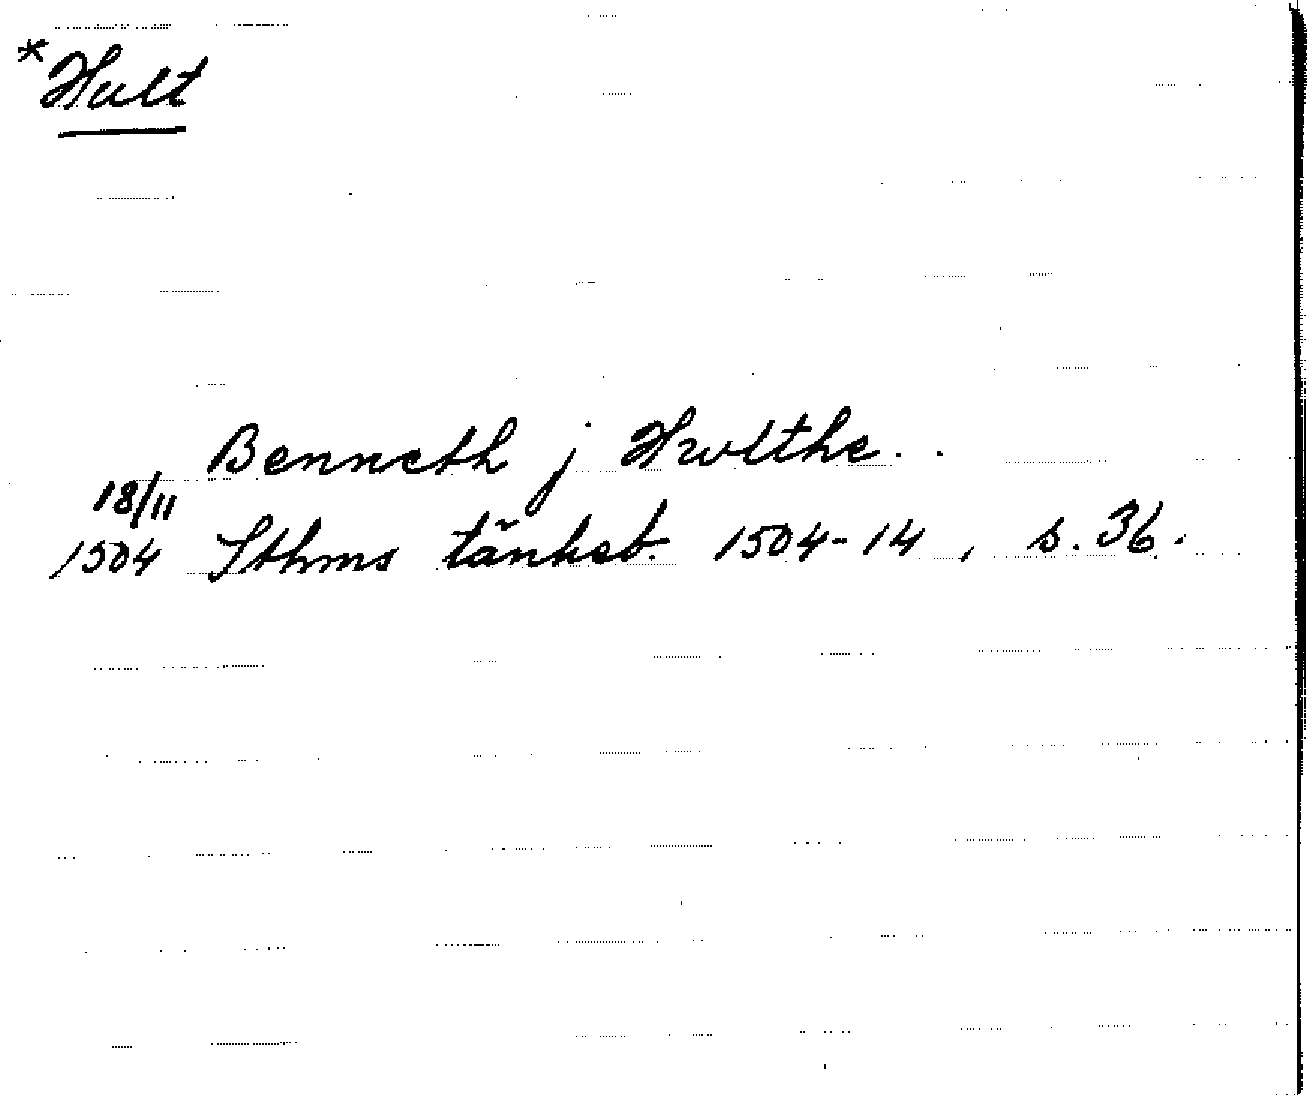 *Hult
Benneth j Hwlthe..
18/11
1504 Sthms tänkeb. 1504-14, s. 36.